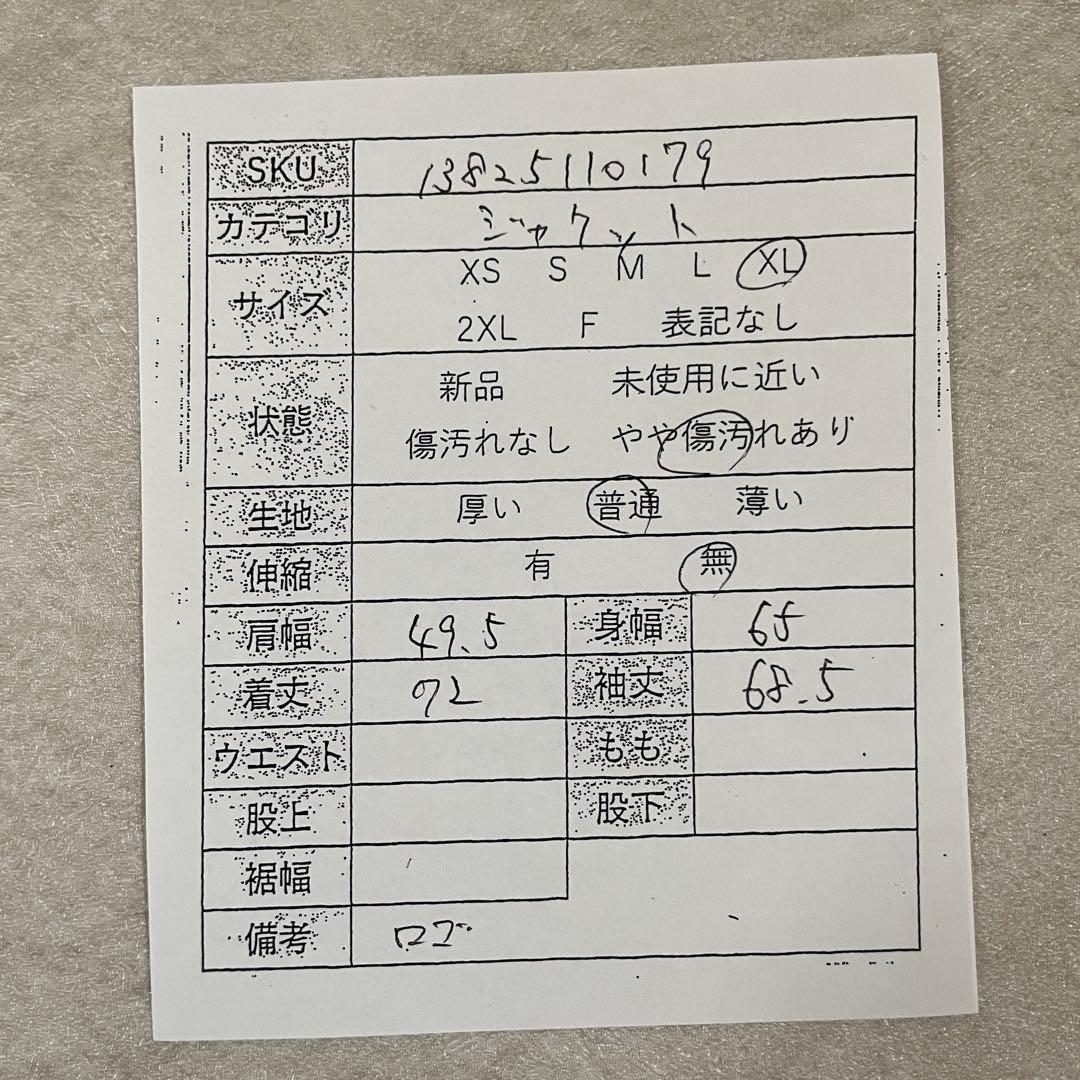 SKU 13825110179
カテゴリ ジャケット
サイズ XS S M L XL
2XL F 表記なし
状態 新品 未使用に近い
傷汚れなし やや傷汚れあり
生地 厚い 普通 薄い
伸縮 有 無
肩幅 49.5 身幅 65
着丈 72 袖丈 68.5
ウエスト もも
股上 股下
裾幅
備考 ロゴ